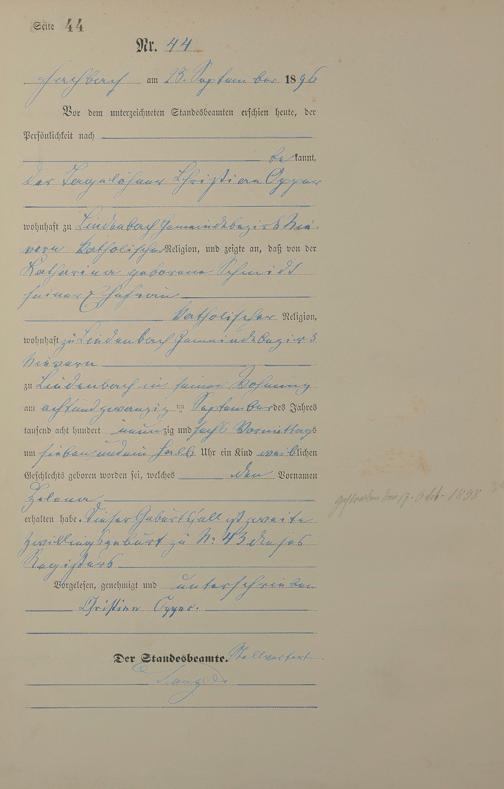 Seite 44
Nr. 44
Fachbach am 28. September 1896
Vor dem unterzeichneten Standesbeamten erschien heute, der
Persönlichkeit nach
be kannt,
der Tagelöhner Christian Opper
wohnhaft zu Lindenbach Gemeindebezirk Nie-
vern katholischer Religion, und zeigte an, daß von der
Katharina geborene Schmidt
seiner Ehefrau
katholischer Religion,
wohnhaft zu Lindenbach Gemeindebezirks
Nievern
zu Lindenbach in seiner Wohnung
am achtundzwanzig ten September des Jahres
tausend acht hundert neunzig und sechs Vormittags
um sieben und ein halb Uhr ein Kind weiblichen
Geschlechts geboren worden sei, welches den Vornamen
Helena
erhalten habe. Dieser Geburtsfall ist zweite
Zwillingsgeburt zu Nr. 43 dieses
Registers
Vorgelesen, genehmigt und unterschrieben
Christian Opper.
Der Standesbeamte. Stellvertret.
gestorben den 17. Okt. 1898